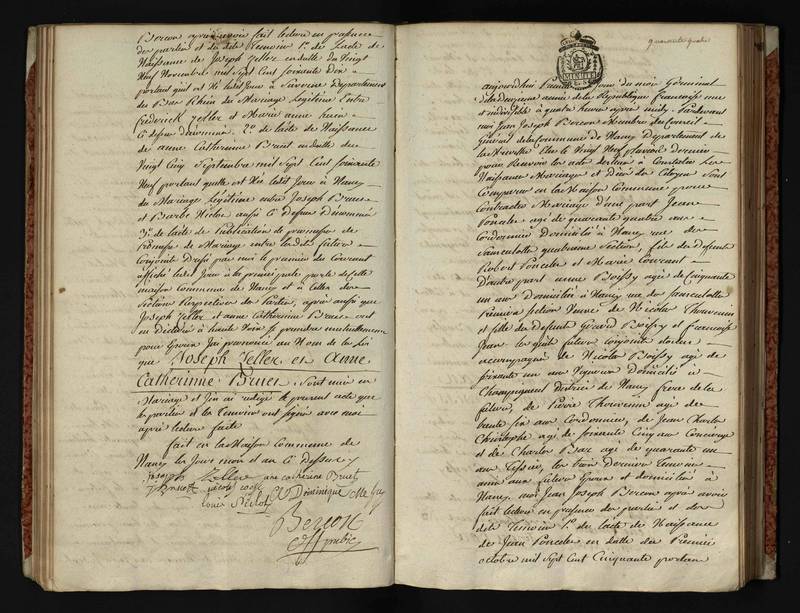 Bercon après avoir fait lecture en présence
des parties et des dits temoins 1.º de l'acte de
Naissance de Joseph Zeller en datte du Vingt
Neuf Novembre mil Sept Cent Soixante Dix
portant quil est Né ledit Jour à Saverne Departement
du Bas Rhin du Mariage Légitime Entre
frederick Zeller et Marie anne
Ci dessus denommé 2.º de l'acte de Naissance
de anne Catherinne Bruet en datte du
Vingt Cinq Septembre mil Sept Cent Soixante
Neuf portant quelle est Née ledit Jour à Nancy
du Mariage Légitime entre Joseph Bruet
et Barbe Nicolas aussi Ci Dessus Dénommé
3.º de l'acte de Publication de promesse de
Mariage entre lesdits futurs
Conjoints Dressé par moi le premier du Courant
affiché ledit Jour à la principale porte de Cette
maison Commune de Nancy et à Celles des
Section Respective des Parties, après aussi que
Joseph Zeller et anne Catherinne Bruet ont
eu Déclaré à haute Voix se prendre mutuellement
pour Epoux J'ai prononcé au Nom de la Loi
que Joseph Zeller et Anne
Catherinne Bruet Sont unis en
Mariage et J'en ai rédigé le présent acte que
les parties et les Temoins ont signé avec moi
après lecture faite
fait en la Maison Commune de
Nancy les Jour mois et an Ci Dessus
joseph Zeller ane catherine Bruet
Dominique
Bercon
off public
quarante quatre
aujourdhui Jour du mois Germinal
Deuxieme année de la République francaise une
et indivisible à quatre heures après midy Pardevant
moi Jean Joseph Bercon Membre du Conseil
Général de la Commune de Nancy Departement de
la Meurthe Elu le Vingt Neuf dernier
pour Recevoir les actes destinés à Constater les
Naissances Mariages et Décès des Citoyens Sont
Comparus en la Maison Commune pour
Contracter Mariage d'une part Jean
Poncelet agé de quarante quatre ans
Cordonnier Domicilié à Nancy rue des
Sansculotte quatrieme Section, fils des Deffunts
Robert Poncelet et Marie
D'autre part anne Boissy agée de Cinquante
un ans Domiciliée à Nancy rue des sansculottes
Section Veuve de Nicolas Thouvenin
et fille des Defunts Gérard Boissy et françoise
Jean les quels futurs Conjoints etoient
accompagnés de Nicolas Boissy agé de
soixante un ans Vigneron Domicilié à
Champigneul District de Nancy frere de la
future, de Pierre Thouvenin agé de
trente six ans Cordonnier, de Jean Charles
Christophe agé de soixante Cinq ans Concierge
et de Charles agé de quarante un
ans Tissier, les trois Derniers temoins
amis aux futurs Epoux et domiciliés à
Nancy, moi Jean Joseph Bercon après avoir
fait lecture en présence des parties et des
dits Temoins 1.º de l'acte de Naissance
de Jean Poncelet en datte du Premier
octobre mil Sept Cent Cinquante portant